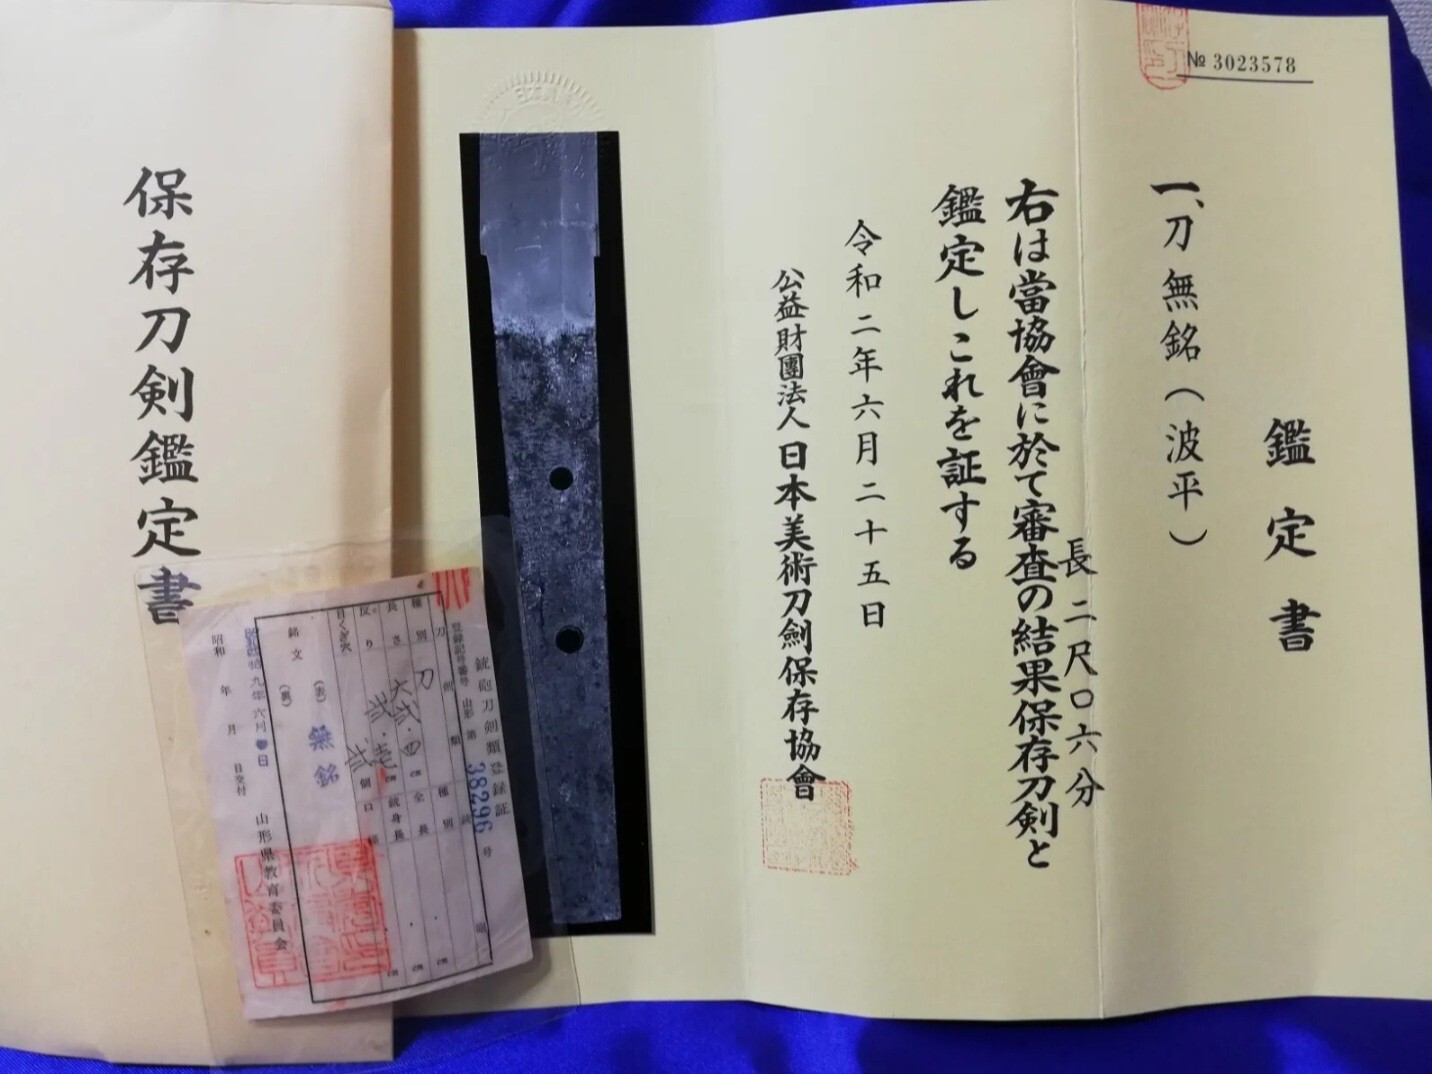 № 3023578
鑑定書
一、刀 無銘（波平）
長 二尺〇六分
右は當協會に於て審査の結果保存刀剣と
鑑定しこれを証する
令和二年六月二十五日
公益財團法人 日本美術刀劍保存協會
保存刀剣鑑定書
銃砲刀剣類登録証
登録記号番号 山形 第 38296 号
刀剣類
種別 刀 種別
長さ 六弐・四 cm 全長 cm
反り 弐・壱 cm 銃身長 cm
目くぎ穴 弐個
銘文 (表) 無銘
(裏)
昭和 年 月 日交付
山形県教育委員会